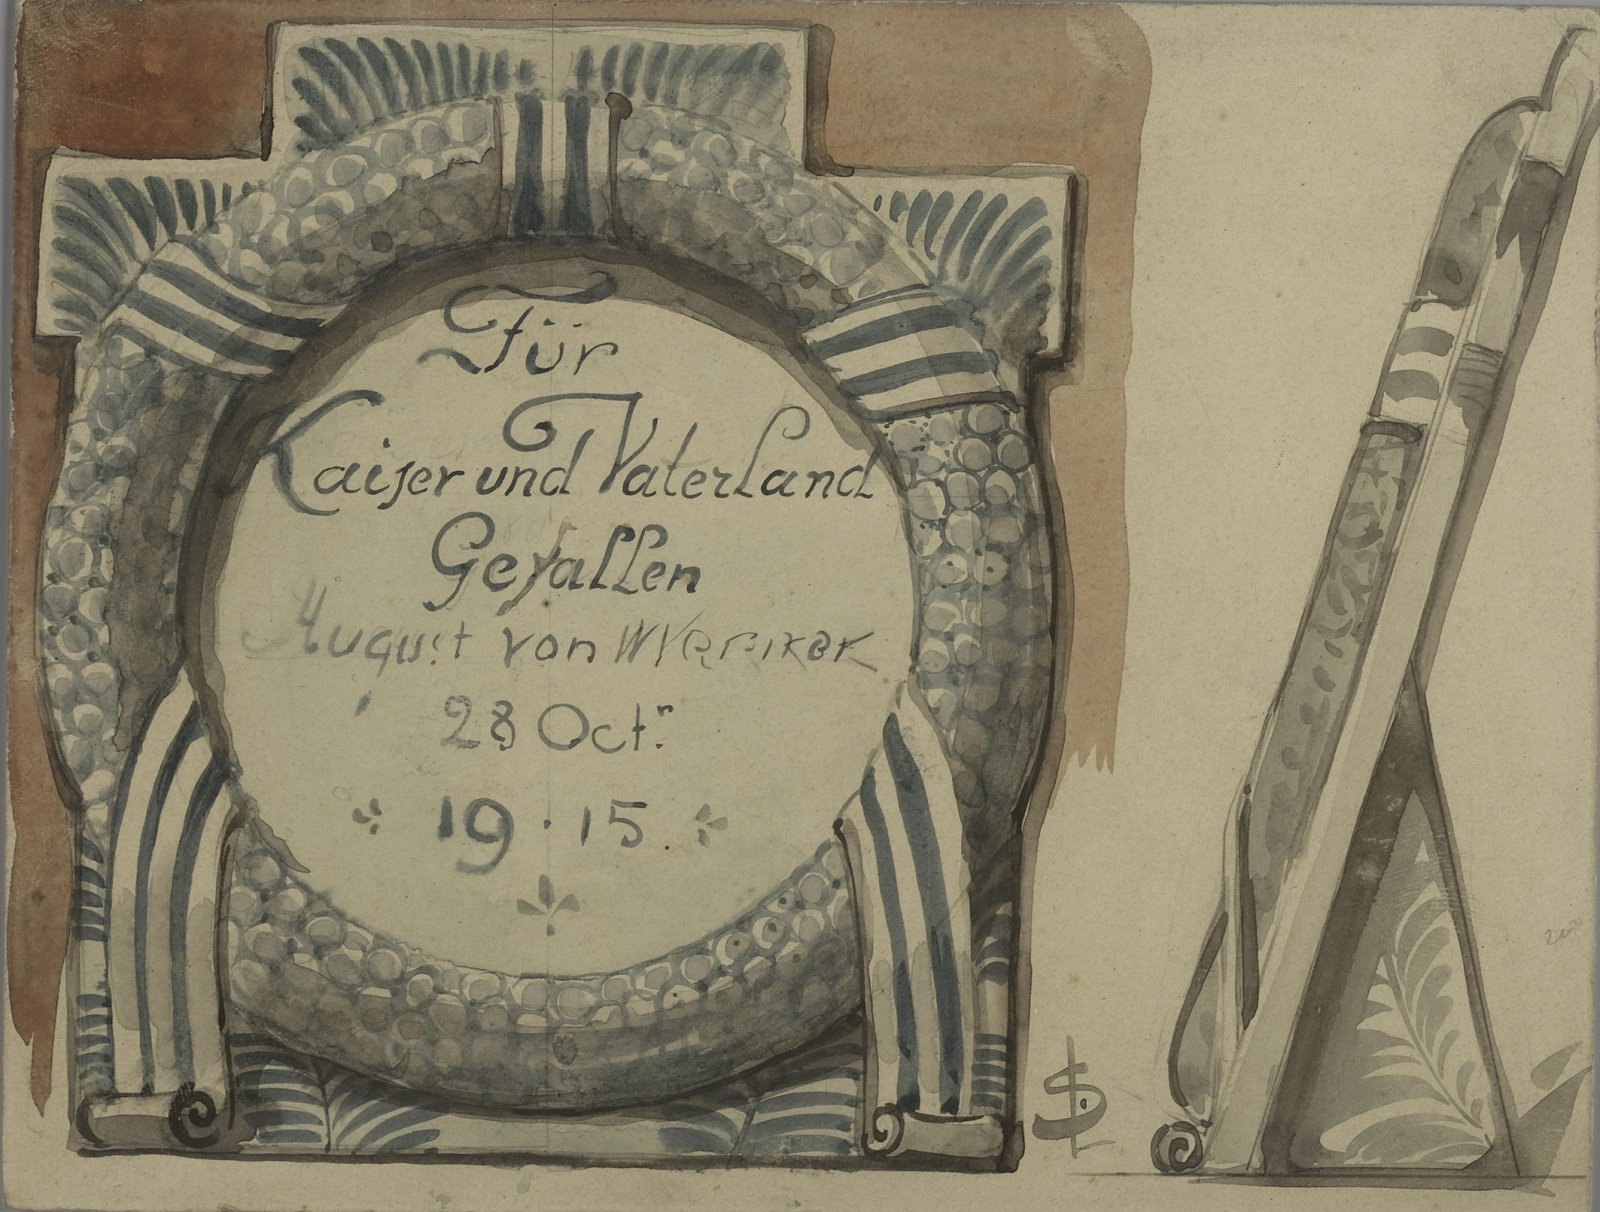 Für
Kaiser und Vaterland
Gefallen
August von
28 Octr.
19 · 15